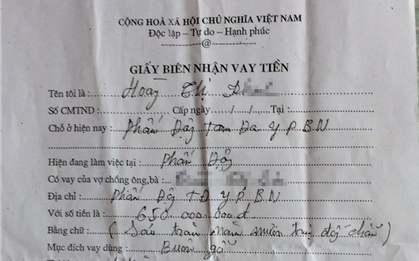 CỘNG HOÀ XÃ HỘI CHỦ NGHĨA VIỆT NAM
Độc lập - Tự do - Hạnh phúc
----------@----------
GIẤY BIÊN NHẬN VAY TIỀN
Tên tôi là : Hoàng Thị
Số CMTND: Cấp ngày / / Tại :
Chỗ ở hiện nay : Phấn Động Tam Đa Y.P.B.N
Hiện đang làm việc tại : Phấn Động
Có vay của vợ chồng ông,bà :
Địa chỉ : Phấn Động TĐ Y.P.B.N
Với số tiền là : 650.000.000đ
Bằng chữ : (Sáu trăm năm mươi triệu đồng chẵn)
Mục đích vay dùng : Buôn gỗ